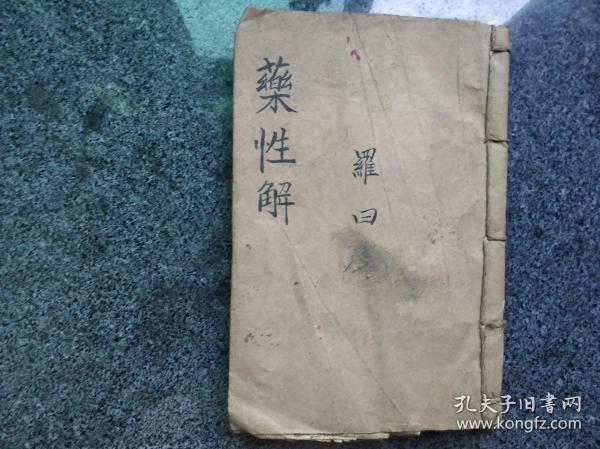 藥性解
羅曰
孔夫子旧书网
www.kongfz.com